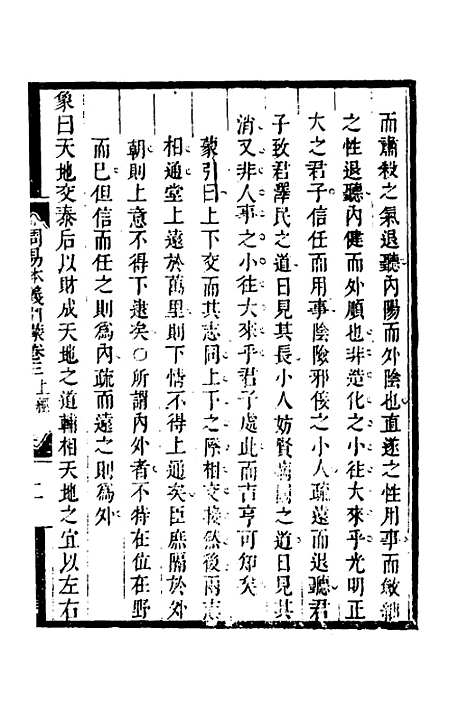 而肅殺之氣退聽內陽而外陰也直遂之性用事而
之性退聽內健而外順也非造化之小往大來乎光明正
大之君子信任而用事陰險邪佞之小人疏遠而退聽君
子致君澤民之道日見其長小人妨賢病國之道日見其
消又非人事之小往大來乎君子處此而吉亨可知矣
蒙引曰上下交而其志同上下之際相交接然後兩志
相通堂上遠於萬里則下情不得上通矣臣庶隔於外
朝則上意不得下逮矣○所謂內外者不特在位在野
而已但信而任之則為內疏而遠之則為外
象曰天地交泰后以財成天地之道輔相天地之宜以左右
周易本義引蒙卷三 上經 二